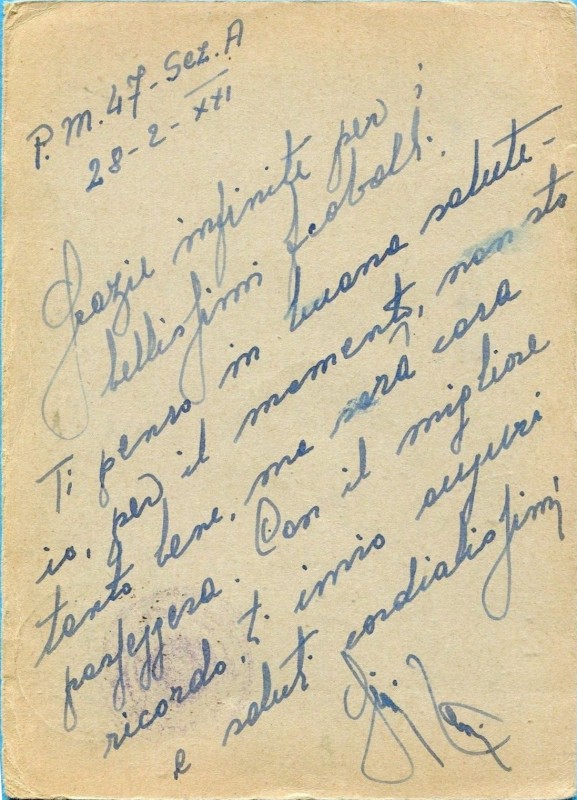 P.M. 47 - Sez. A
28-2-XXI
Grazie infinite per i
bellissimi
Ti penso in buona salute-
io, per il momento, non sto
tanto bene, ma sarà cosa
passeggera. Con il migliore
ricordo, ti invio auguri
e saluti cordialissimi